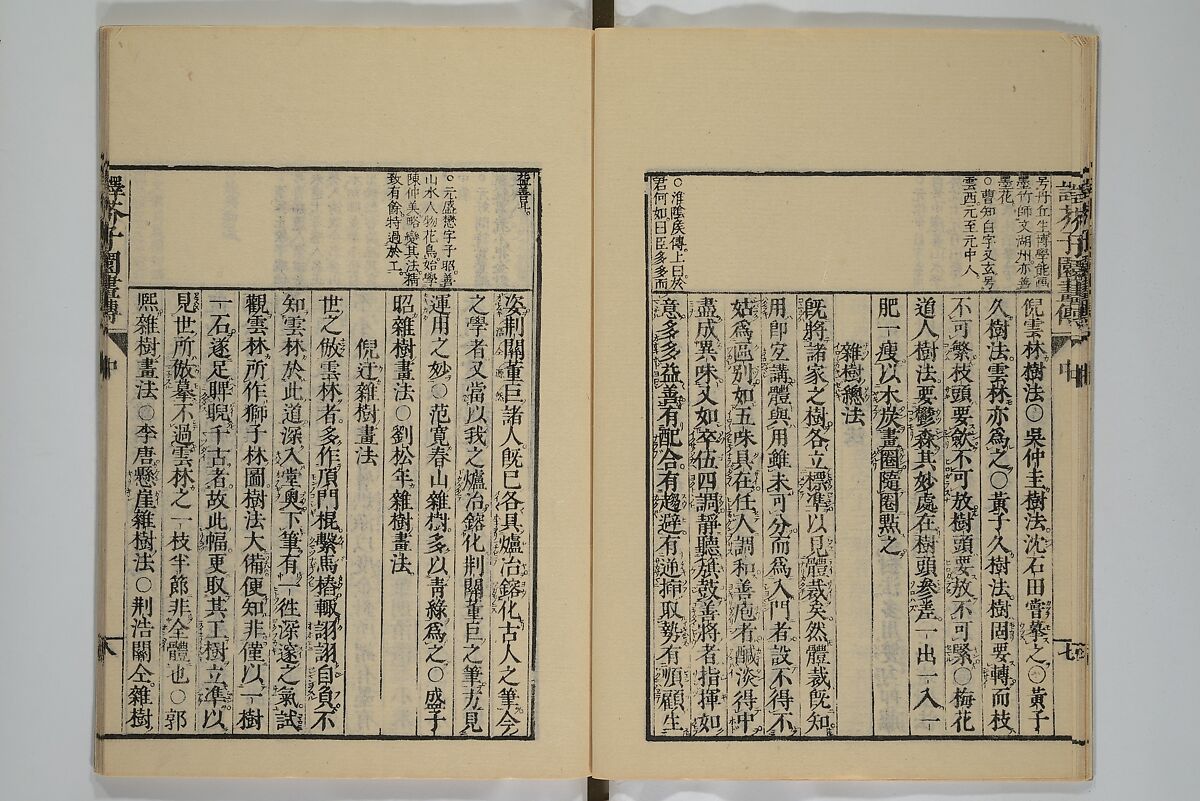 譯芥子園畫傳
中
七
号丹丘生博學能画
墨竹師文湖州亦善
墨花
○曹知白字又玄号
雲西元至元中人
○淮陰矦傳上曰於
君何如曰臣多多而
倪雲林樹法○吳仲圭樹法沈石田嘗摹之○黃子
久樹法雲林亦爲之○黃子久樹法樹固要轉而枝
不可繁枝頭要歛不可放樹頭要放不可緊○梅花
道人樹法要鬱森其妙處在樹頭參差一出一入一
肥一瘦以木炭畫圈隨圈㸃之
雜樹總法
旣將諸家之樹各立標準以見體裁矣然體裁旣知
用卽宜講體與用雖未可分而爲入門者設不得不
姑爲區別如五味具在任人調和善庖者鹹淡得中
盡成異味又如卒伍四調靜聽旗鼓善將者指揮如
意多多益善有配合有趨避有逓揷取勢有順顧生
益善耳
○元盛懋字子昭善
山水人物花鳥始學
陳仲美略變其法精
致有餘特過於工
姿荆關董巨諸人旣已各具爐冶鎔化古人之筆今
之學者又當以我之爐冶鎔化荆關董巨之筆方見
運用之妙○范寬春山雜樹多以靑綠爲之○盛子
昭雜樹畫法○劉松年雜樹畫法
倪迂雜樹畫法
世之倣雲林者多作頂門棍繫馬樁輙詡詡自負不
知雲林於此道深入堂奧下筆有一徃深邃之氣試
觀雲林所作獅子林圖樹法大備便知非僅以一樹
一石遂足睥睨千古者故此幅更取其工樹立凖以
見世所倣摹不過雲林之一枝半節非全體也○郭
熙雜樹畫法○李唐懸崖雜樹法○荆浩關仝雜樹
譯芥子園畫傳
中
八